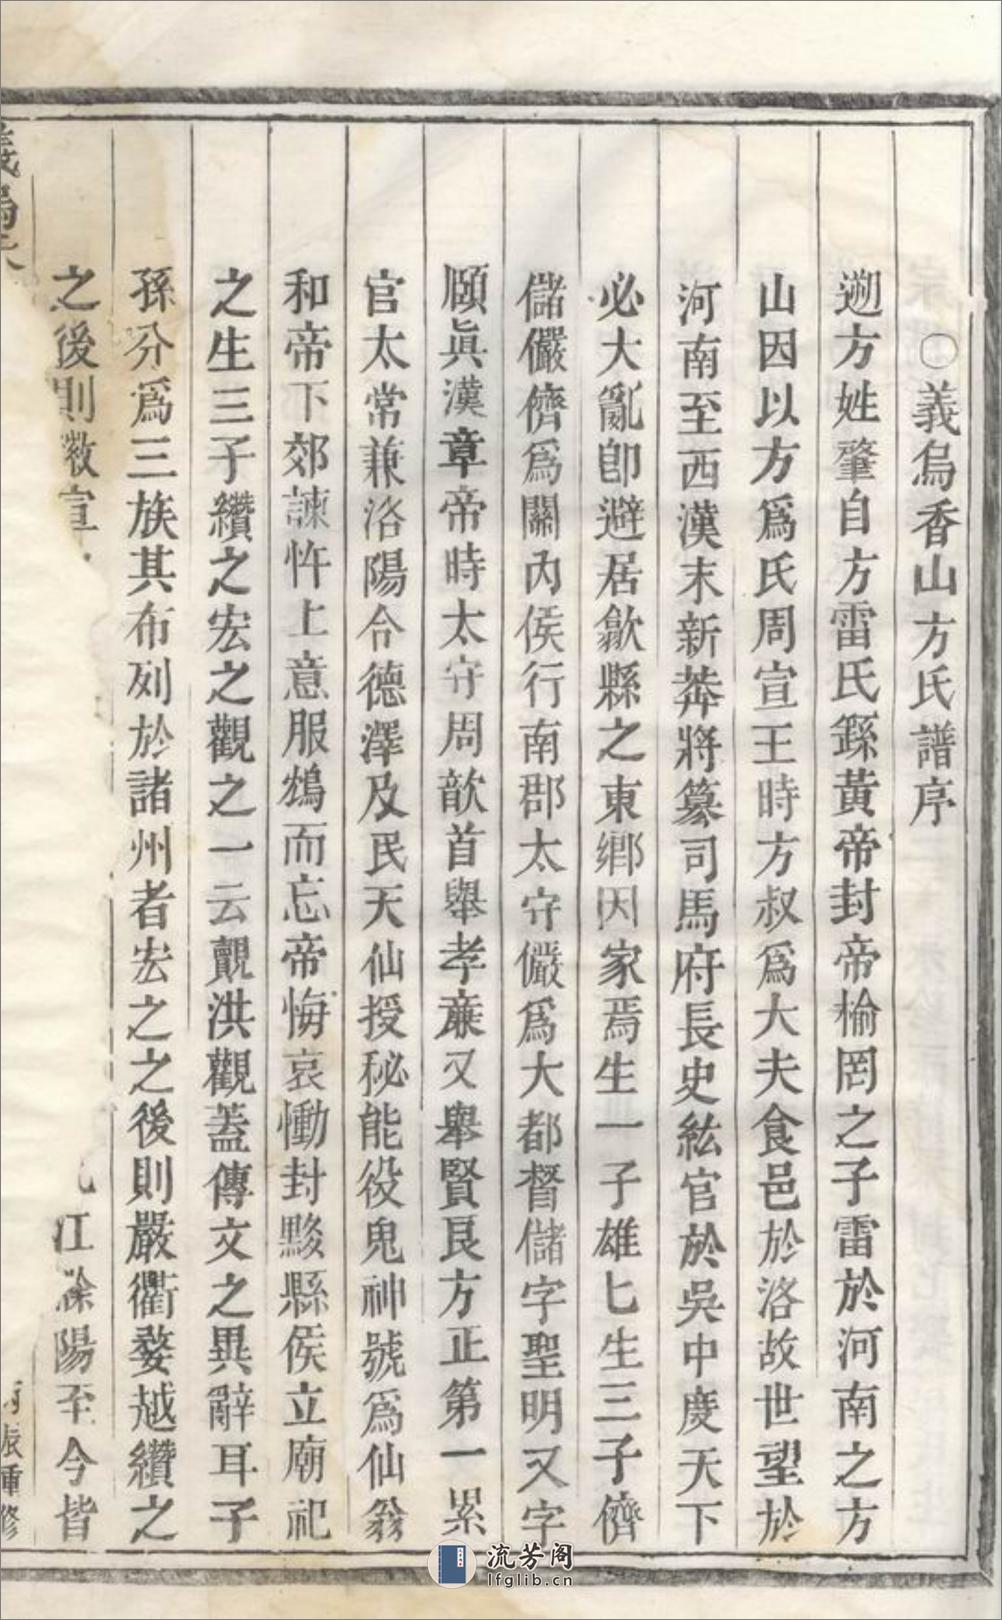 〇義烏香山方氏譜序
遡方姓肇自方雷氏繇黃帝封帝榆罔之子雷於河南之方
山因以方爲氏周宣王時方叔爲大夫食邑於洛故世望於
河南至西漢末新莽將篡司馬府長史紘官於吳中慶天下
必大亂卽避居歙縣之東鄉因家焉生一子雄匕生三子儕
儲儼儕爲關內侯行南郡太守儼爲大都督儲字聖明又字
頤眞漢章帝時太守周歆首舉孝廉又舉賢良方正第一累
官太常兼洛陽令德澤及民天仙授秘能役鬼神號爲仙翁
和帝下郊諫忤上意服鴆而忘帝悔哀慟封黟縣侯立廟祀
之生三子纘之宏之觀之一云觀洪觀蓋傳文之異辭耳子
孫分爲三族其布列於諸州者宏之之後則嚴衢婺越纘之
之後則徽宣江滁陽至今皆
義烏
重修
流芳阁
lfglib.cn